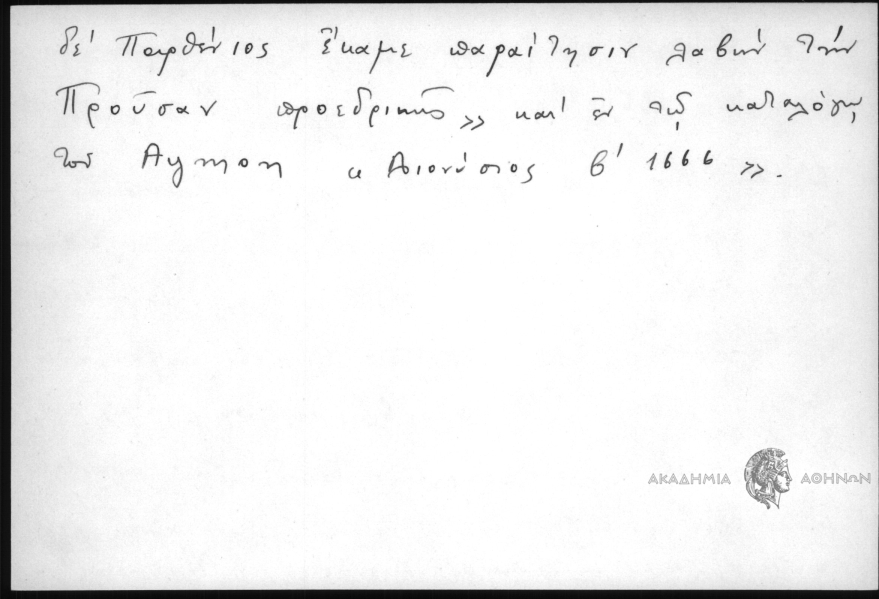 δέ Παρθένιος ἔκαμε παραίτησιν λαβών τήν
Προῦσαν προεδρικῶς» καί ἐν τῷ καταλόγῳ
τοῦ « Διονύσιος β' 1666 ».
ΑΚΑΔΗΜΙΑ ΑΘΗΝΩΝ